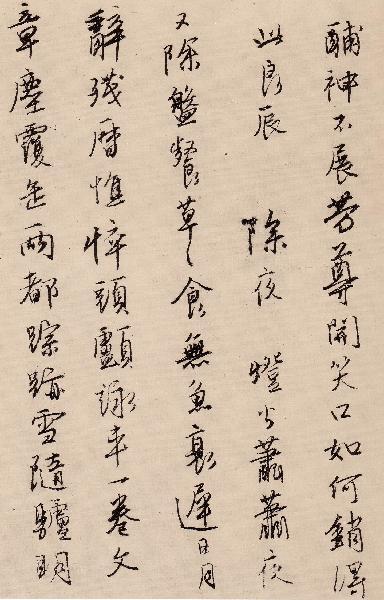 酺神不展芳尊開笑口如何銷得
此良辰　除夜　燈火蕭蕭夜
又除盤餐草草食無魚衰遲日月
辭殘曆憔悴頭顱詠車一卷文
章塵覆缶兩都踪跡雪隨驢明